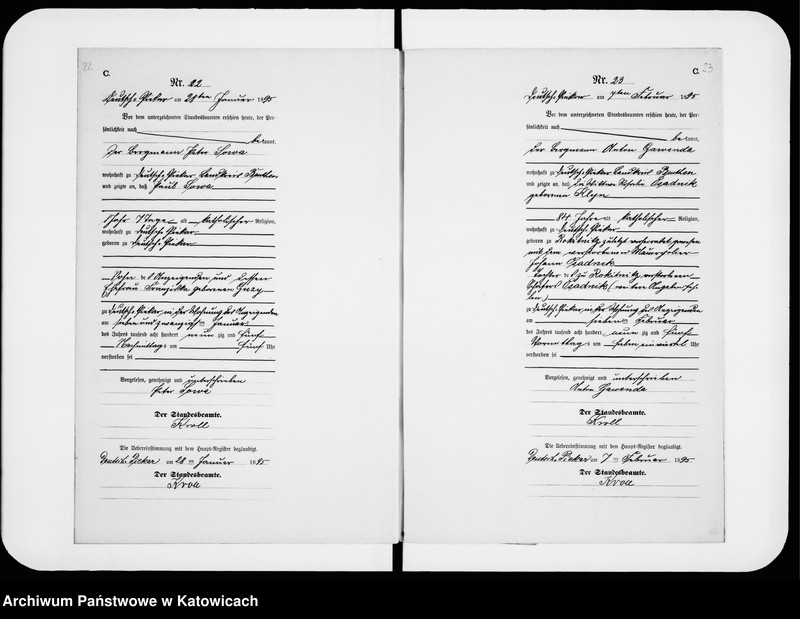 22
C.
Nr. 22
Deutsch Piekar am 28ten Januar 1895
Vor dem unterzeichneten Standesbeamten erschien heute, der Per-
sönlichkeit nach
be kannt,
Der Bergmann Peter Sowa
wohnhaft zu Deutsch Piekar Landkreis Beuthen
und zeigte an, daß Paul Sowa
1 Jahr 7 Tage alt katholischer Religion,
wohnhaft zu Deutsch Piekar
geboren zu Deutsch Piekar
Sohn des Anzeigenden und dessen
Ehefrau Franziska geborenen
zu Deutsch Piekar, in der Wohnung des Anzeigenden
am sieben und zwanzigsten Januar
des Jahres tausend acht hundert neun zig und fünf
Nachmittags um fünf Uhr
verstorben sei
Vorgelesen, genehmigt und unterschrieben
Peter Sowa
Der Standesbeamte.
Kroll
Die Uebereinstimmung mit dem Haupt-Register beglaubigt.
Deutsch Piekar am 28 ten Januar 1895
Der Standesbeamte.
Kroll
C.
23
Nr. 23
Deutsch Piekar am 7ten Februar 1895
Vor dem unterzeichneten Standesbeamten erschien heute, der Per-
sönlichkeit nach
be kannt,
Der Bergmann Anton Gawenda
wohnhaft zu Deutsch Piekar Landkreis Beuthen
und zeigte an, daß die Wittwe Czadnik
geborene Kleyn
84 Jahre alt katholischer Religion,
wohnhaft zu Deutsch Piekar
geboren zu Rokitnitz, zuletzt verheirathet gewesen
mit dem verstorbenen
Johann Czadnik
Tochter des zu Rokitnitz verstorbenen
Czadnik (weitere Angaben feh-
len)
zu Deutsch Piekar, in der Wohnung des Anzeigenden
am sieben ten Februar
des Jahres tausend acht hundert neun zig und fünf
Vormittags um sieben ein viertel Uhr
verstorben sei
Vorgelesen, genehmigt und unterschrieben
Anton Gawenda
Der Standesbeamte.
Kroll
Die Uebereinstimmung mit dem Haupt-Register beglaubigt.
Deutsch Piekar am 7 ten Februar 1895
Der Standesbeamte.
Kroll
Archiwum Państwowe w Katowicach